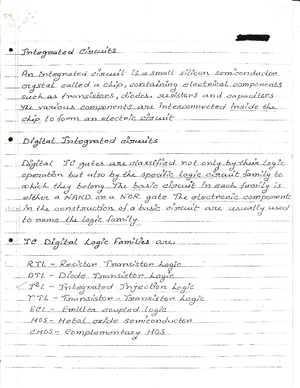 Integrated Circuits
An integrated circuit is a small silicon semiconductor
crystal called a chip, containing electrical components
such as transistors, diodes, resistors and capacitors
The various components are interconnected inside the
chip to form an electric circuit
Digital Integrated circuits
Digital IC gates are classified not only by their logic
operation but also by the specific logic circuit family to
which they belong. The basic circuit in each family is
either a NAND or a NOR gate. The electronic component
in the construction of a basic circuit are usually used
to name the logic family.
IC Digital Logic Families are.
RTL - Resistor Transistor Logic
DTL - Diode Transistor Logic
I²L - Integrated Injection Logic
TTL - Transistor - Transistor Logic
ECL - Emitter coupled logic
MOS - Metal oxide semiconductor
CMOS - Complementary MOS